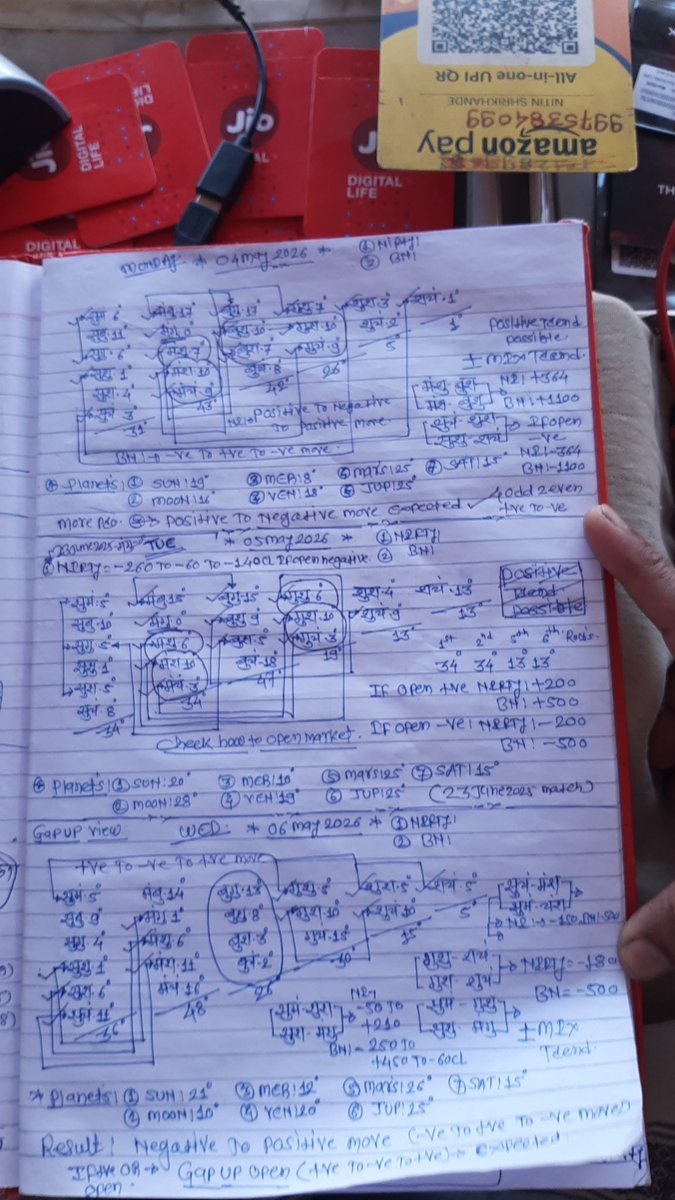 Jio
DIGITAL
LIFE
Jio
DIGITAL
LIFE
DIGITAL
All-in-one UPI QR
NITIN SHRIKHANDE
9975384099
amazon pay
TH
Monday * 04 may 2026 * ① NIFTY!
② BN!
सुमं 6° मंबु 17° बुगु 17° गुशु 7° शुश 3° शचं 1°
सुबु 11° मंगु 0° बुशु 10° गुश 10° शुचं 2° 1° Positive Trend
सुगु 6° मंशु 7° बुश 7° गुचं 9° 5° possible
सुशु 1° मंश 10° बुचं 8° 26° ± MIX Trend
सुश 4° मंचं 9° 42°
सुचं 3° 43°
31°
N2! +364
BN! +1100
Positive To Negative
To positive more
If open
-ve
N2! -364
BN! -1100
BN! → -ve To +ve To -ve move.
* Planets! ① SUN! 19° ③ MER! 8° ⑤ Mars! 25° ⑦ SAT! 15°
② MOON! 16° ④ VEN! 18° ⑥ JUP! 25°
→ Positive To Negative move Expected ✓ 4 odd 2 even
+ve To -ve
TUE * 05 may 2026 * ① NIFTY
② BN!
NIFTY = -260 To -60 To -140 CL If open negative.
सुमं 5° मंबु 15° बुगु 15° गुशु 6° शुश 4° शचं 13° Positive
सुबु 10° मंगु 0° बुशु 9° गुश 10° शुचं 9° 13° Trend
सुगु 5° मंशु 6° बुश 5° गुचं 3° 13° possible
सुशु 1° मंश 10° बुचं 18° 19° 1st 2nd 5th 6th
सुश 5° मंचं 3° 47° 34° 34° 13° 13°
सुचं 8° 34
34°
If open +ve NIFTY! +200
BN! +500
If open -ve! NIFTY! -200
BN! -500
Check how to open market.
* Planets! ① SUN! 20° ③ MER! 10° ⑤ Mars! 25° ⑦ SAT! 15°
② MOON! 28° ④ VEN! 19° ⑥ JUP! 25° (23 June 2025 match)
Gap up view WED. * 06 may 2026 * ① NIFTY!
② BN!
+ve To -ve To +ve move
सुमं 5° मंबु 14° बुगु 13° गुशु 5° शुश 5° शचं 5°
सुबु 9° मंगु 1° बुशु 8° गुश 10° शुचं 10° 5°
सुगु 4° मंशु 6° बुश 3° गुचं 15° 15°
सुशु 1° मंश 11° बुचं 2° 30°
सुश 6° मंचं 16° 26°
सुचं 11° 48°
36°
NIFTY = -180
BN = -500
-50 To
+210
BN! - 250 To
+450 To -60CL
± MIX
Trend.
* Planets! ① SUN! 21° ③ MER! 12° ⑤ Mars! 26° ⑦ SAT! 15°
② MOON! 10° ④ VEN! 20° ⑥ JUP! 25°
Result! Negative To Positive move (-ve To +ve To -ve move)
If +ve OR → Gap up open (+ve To -ve To +ve) → Expected.
open.